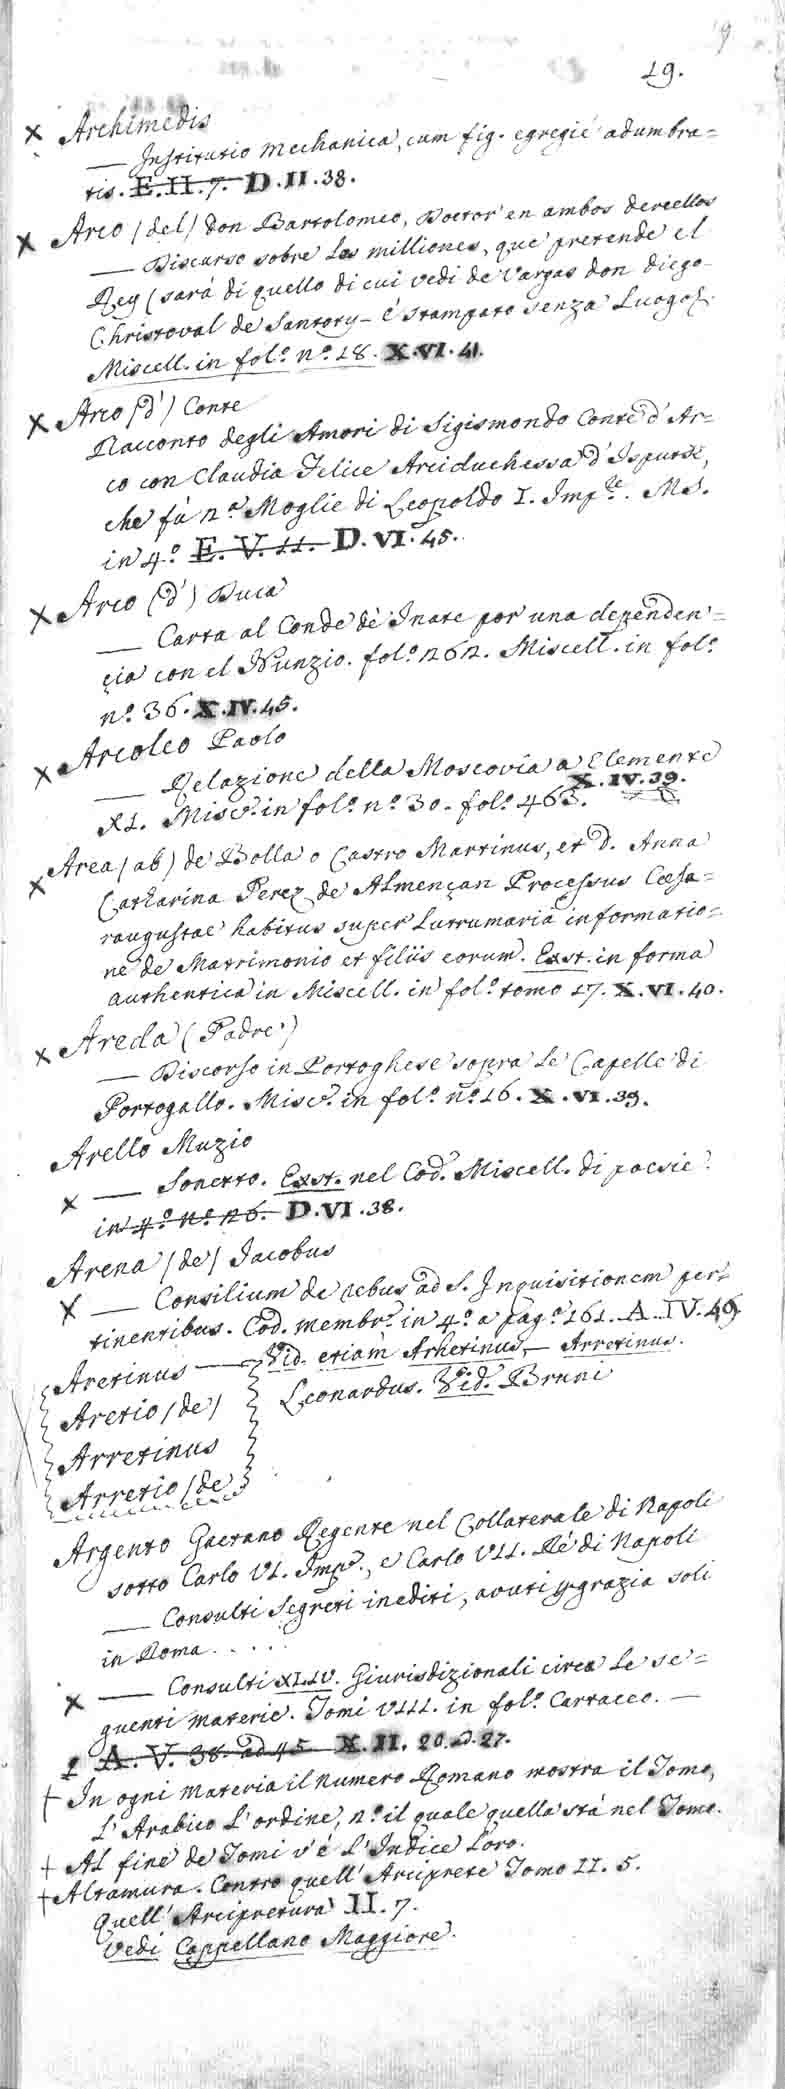 19.
× Archimedis
— Institutio Mechanica, cum fig. egregiè adumbra=
tis. E.II.7. D.II.38.
× Arco (del) don Bartolomeo, Doctor en ambos derecllos
— Discurso sobre los milliones, que pretende el
Rey (sarà di quello di cui vedi de Vargas don diego
Christoval de Santory - è stampato senza Luogo).
Miscell. in fol.º n.º 18. X.VI.41.
× Arco (d') Conte
Racconto degli Amori di Sigismondo Conte d'Ar=
co con Claudia Felice Arciduchessa d'Ispurch,
che fù 2.ª Moglie di Leopoldo I. Imp.re. MS.
in 4.º E.V.11. D.VI.45.
× Arco (d') Duca
— Carta al Conde de Inate por una dependen=
çia con el Nunzio. fol.º 262. Miscell. in fol.º
n.º 36. X.IV.45.
× Arcoleo Paolo
— Relazione della Moscovia a Clemente
XI. Misc.ª in fol.º n.º 30. fol.º 463. X.IV.39.
× Area (ab) de Bolla o Castro Martinus, et D. Anna
Catharina Perez de Almençan Processus Cæsa=
raugustae habitus super Lutrumaria informatio=
ne de Matrimonio et filiis eorum. Exst. in forma
authentica in Miscell. in fol.º tomo 17. X.VI.40.
× Areda (Padre)
— Discorso in Portoghese sopra le Capelle di
Portogallo. Misc.ª in fol.º n.º 16. X.VI.39.
Arello Muzio
× — Sonetto. Exst. nel Cod. Miscell. di poesie
in 4.º n.º 26. D.VI.38.
Arena (de) Jacobus
× — Consilium de rebus ad S. Inquisitionem per=
tinentibus. Cod. membr.º in 4.º a pag.ª 161. A.IV.49.
Aretinus — Vid. etiam Arhetinus, — Arretinus.
Aretio (de) Leonardus. Vid. Bruni
Arretinus
Arretio (de
Argento Gaetano Regente nel Collaterale di Napoli
sotto Carlo VI. Imp.e, e Carlo VII. Rè di Napoli
— Consulti Segreti inediti, avuti p grazia soli
in Roma . . . . .
× — Consulti XLIV. Giurisdizionali circa le se=
guenti materie. Tomi VIII. in fol.º Cartacco. —
A.V. 38. ad 45 X.II. 20. ad. 27.
+ In ogni materia il numero Romano mostra il Tomo,
L'Arabico l'ordine, n.º il quale quella stà nel Tomo.
+ Al fine de Tomi v'è l'Indice loro.
+ Altamura. Contro quell'Arciprete Tomo II. 5.
Quell'Arcipretura II. 7.
Vedi Cappellano Maggiore.